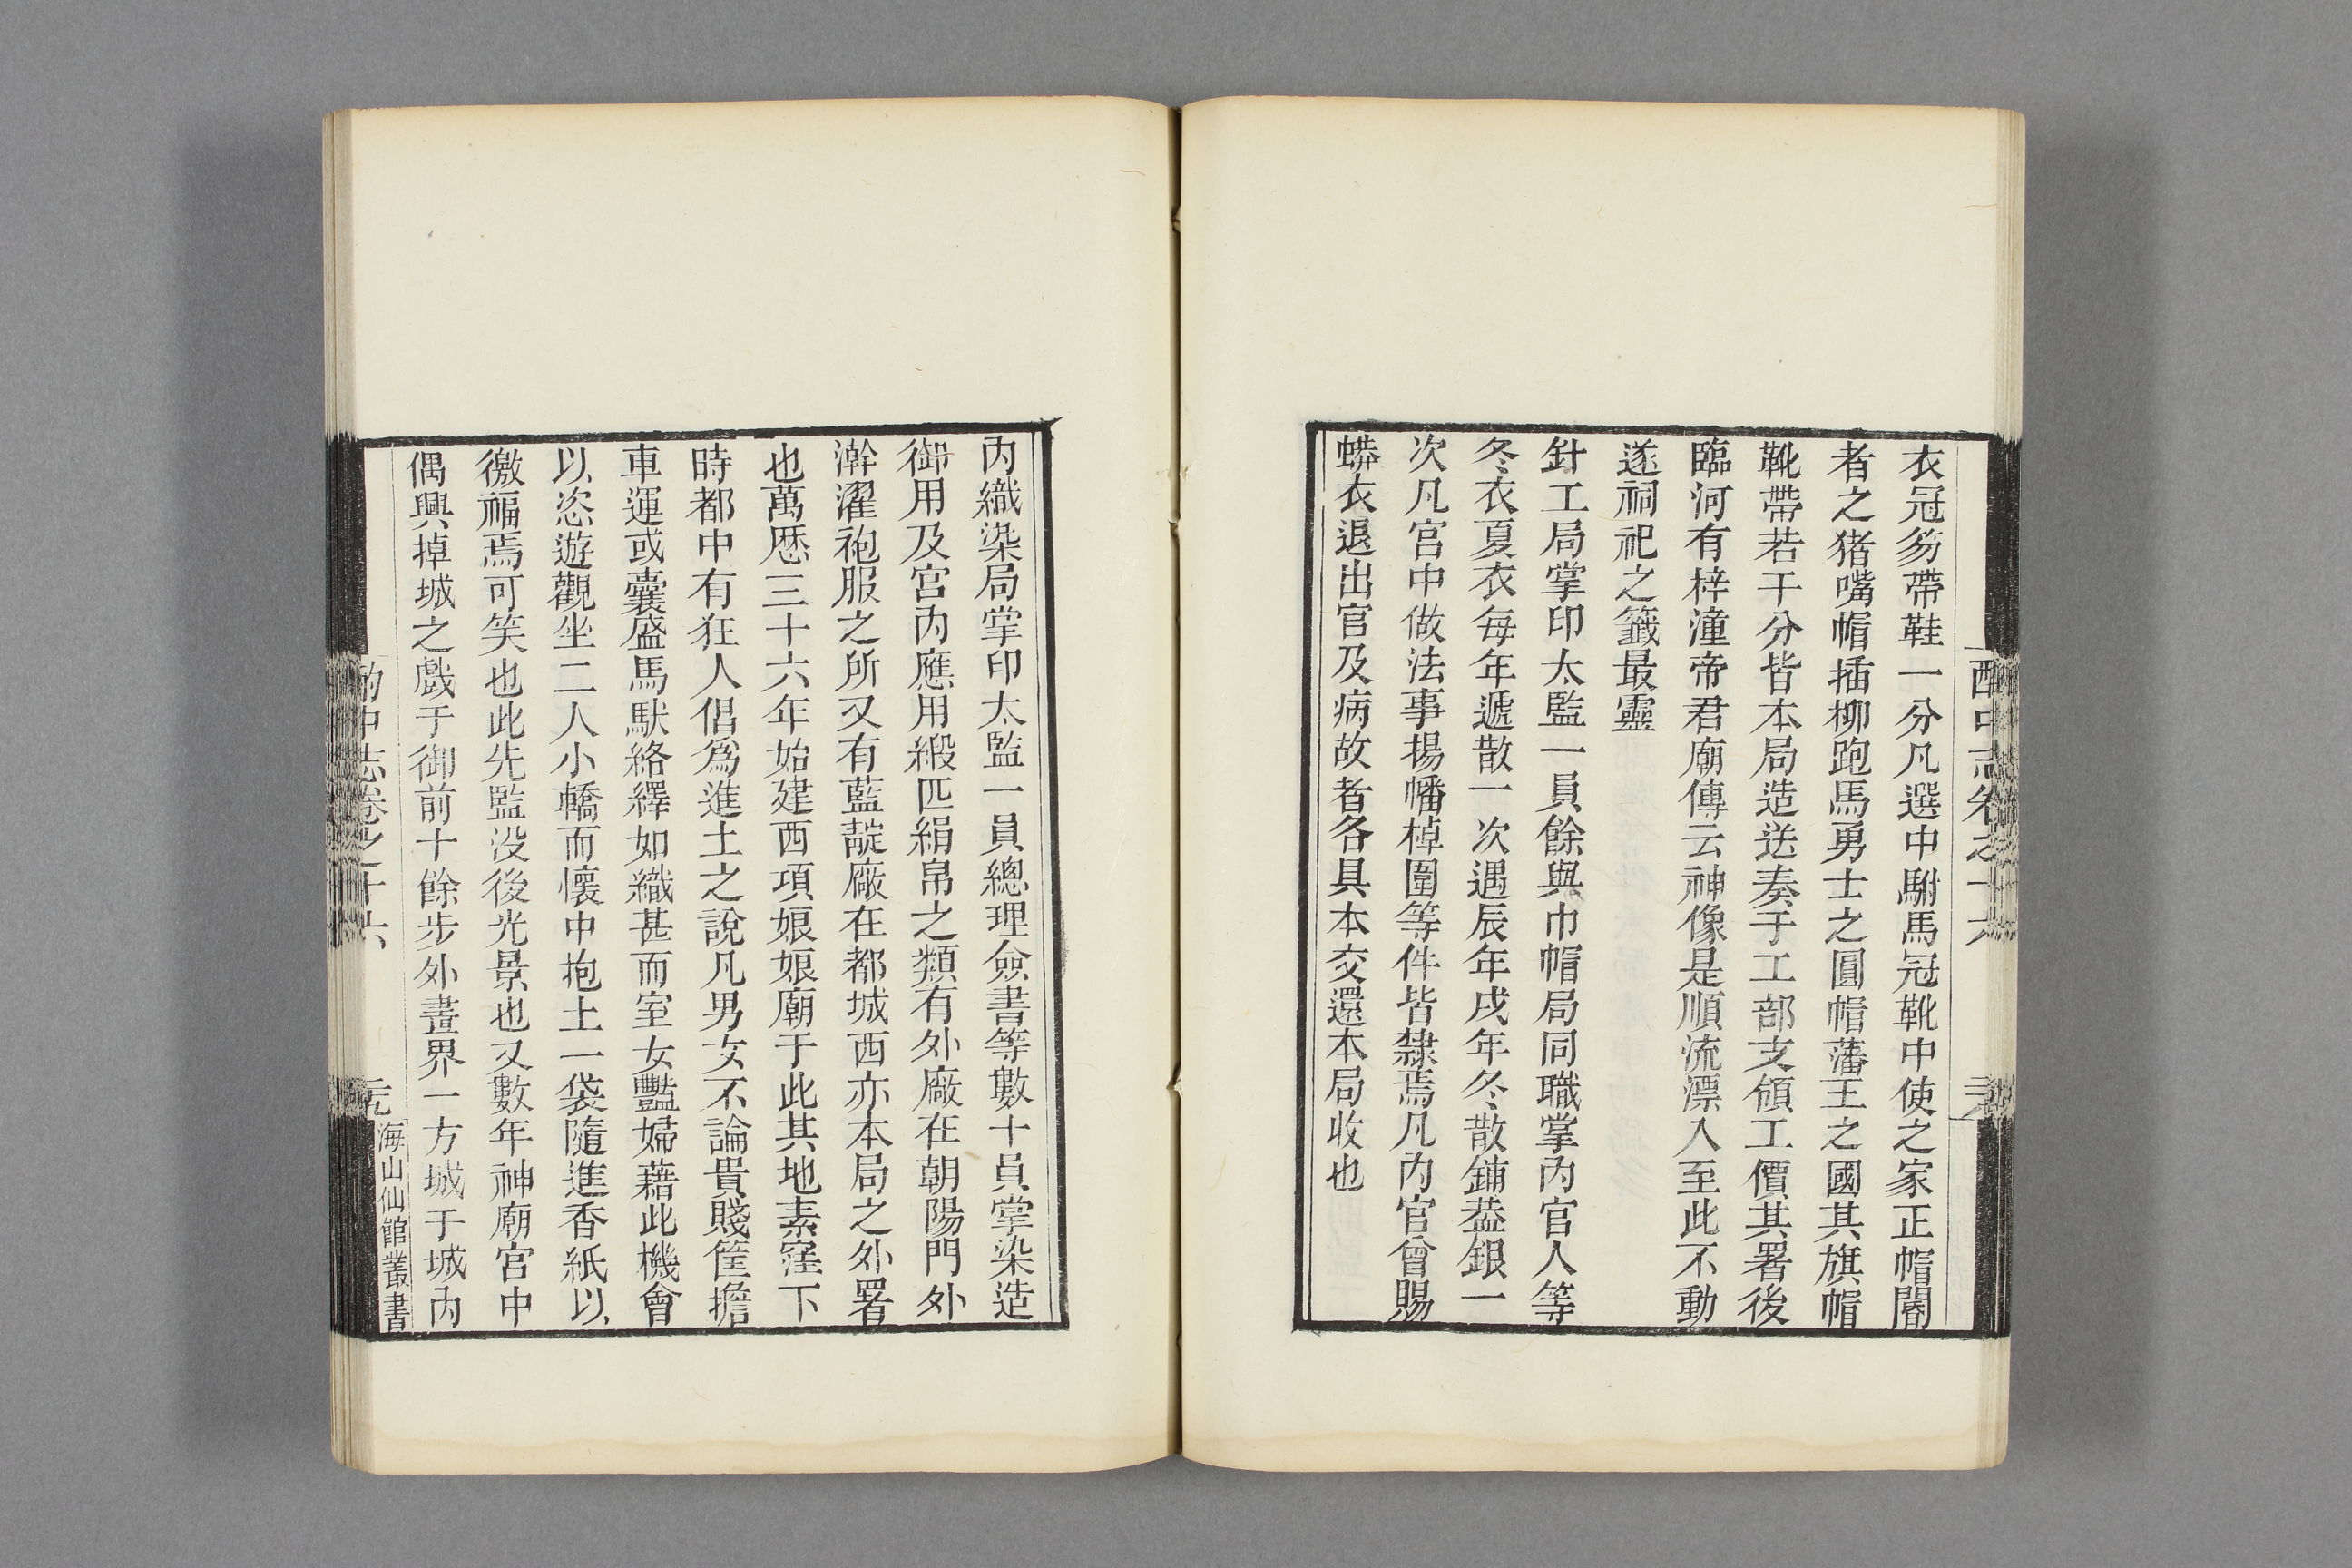 衣冠笏帶鞋一分凡選中駙馬冠靴中使之家正帽閽
者之猪嘴帽插柳跑馬勇士之圓帽藩王之國其旗帽
靴帶若干分皆本局造送奏于工部支領工價其署後
臨河有梓潼帝君廟傳云神像是順流漂入至此不動
遂祠祀之籤最靈
針工局掌印太監一員餘與巾帽局同職掌內官人等
冬衣夏衣每年遞散一次遇辰年戌年冬散鋪葢銀一
次凡宮中做法事揚幡棹圍等件皆隸焉凡內官曾賜
蟒衣退出官及病故者各具本交還本局收也
內織染局掌印太監一員總理僉書等數十員掌染造
御用及宮內應用緞匹絹帛之類有外廠在朝陽門外
澣濯袍服之所又有藍靛廠在都城西亦本局之外署
也萬厯三十六年始建西項娘娘廟于此其地素窪下
時都中有狂人倡爲進土之說凡男女不論貴賤筐擔
車運或囊盛馬馱絡繹如織甚而室女豔婦藉此機會
以恣遊觀坐二人小轎而懷中抱土一袋隨進香紙以
徼福焉可笑也此先監沒後光景也又數年神廟宮中
偶興掉城之戲于御前十餘步外畫界一方城于城內
酌中志卷之十六
海山仙館叢書